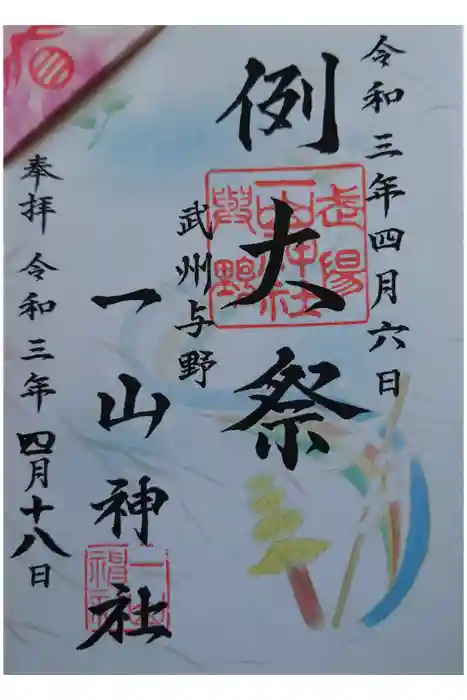 令和三年四月六日
例大祭
武陽
一山神社
與野
武州与野
一山神社
奉拝 令和三年四月十八日